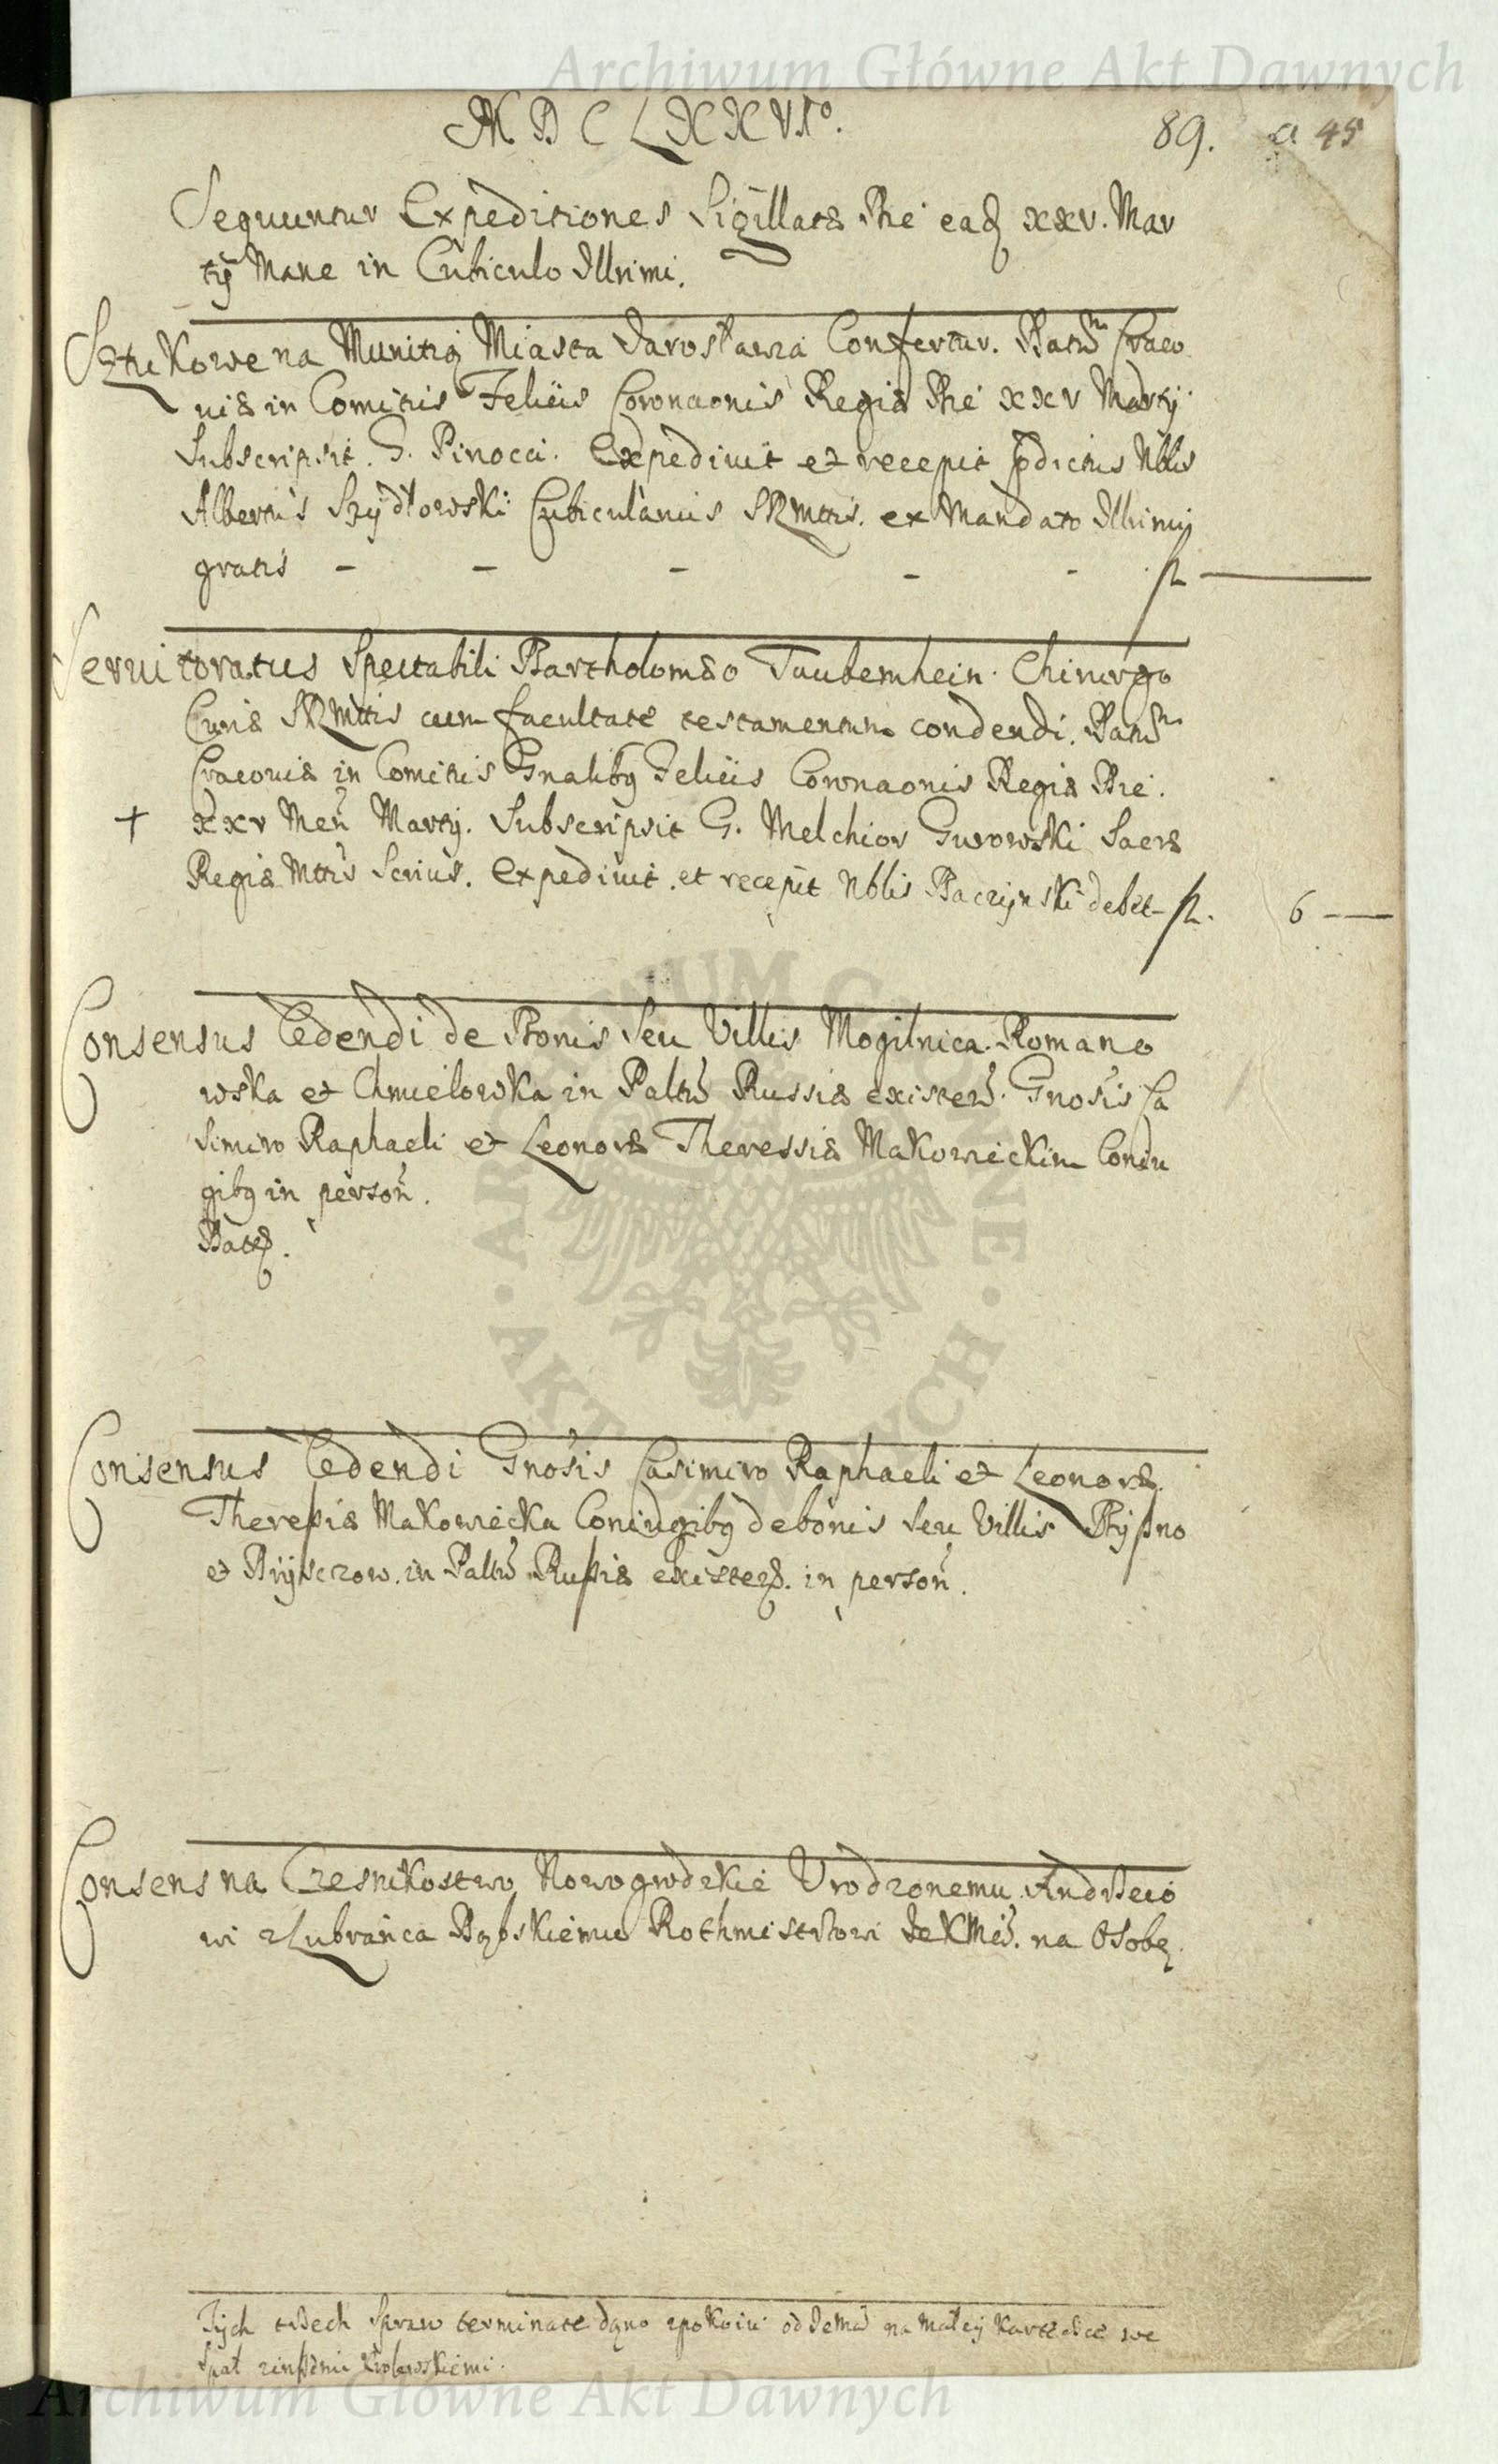 Archiwum Główne Akt Dawnych
MDCLXXVIo.
89. a 45
Sequuntur Expeditiones Sigillatæ Die eadem xxv. Mar
tij Mane in Cubiculo Illrimi.
Sztukowe na Munitią Miasta Jarosławia Confertur. Datum Craco
uiæ in Comitiis Feliciis Coronaonis Regiæ Die xxv Martij.
Subscripsit. H. Pinocci. Expediuit et recepit pdictus Nblis
Albertus Szydłowski Cubicularius SRMttis. ex Mandato Illrimi
gratis - - - - - fl
Seruitoratus Spectabili Bartholomæo Taubemhein. Chirurgo
Curiæ SRMttis cum facultate testamentum condendi. Datum
Cracouiæ in Comitiis Gnalibq Feliciis Coronaonis Regiæ Die.
+ xxv Men Martij. Subscripsit G. Melchior Gurowski Sacræ
Regiæ Mttis Scrius. Expediuit et recepit Nblis Baczynski debet fl. 6
Consensus Cedendi de Bonis Seu Villis Mogilnica. Romano
wska et Chmielowka in Paltu Russiæ existen. Gnosis Ca
simiro Raphaeli et Leonoræ Theressiæ Makowieckim Coniu
gibq in person.
Dates.
Consensus Cedendi Gnosis Casimiro Raphaeli et Leonoræ
Theressiæ Makowiecka Coniugibq de bonis seu Villis
et in Paltu Russiæ existen. in person.
Consens na Czesnikostwo Nowogrodzkie Urodzonemu Andrzeio
wi z Lubrańca Dąbskiemu Rothmistrzowi JeKMci. na Osobę.
Tych trzech spraw terminate dano z pokoiu od Jema na małey karteluce we
spał królewskiemi.
Archiwum Główne Akt Dawnych
ARCHIWUM GŁÓWNE · AKT DAWNYCH ·